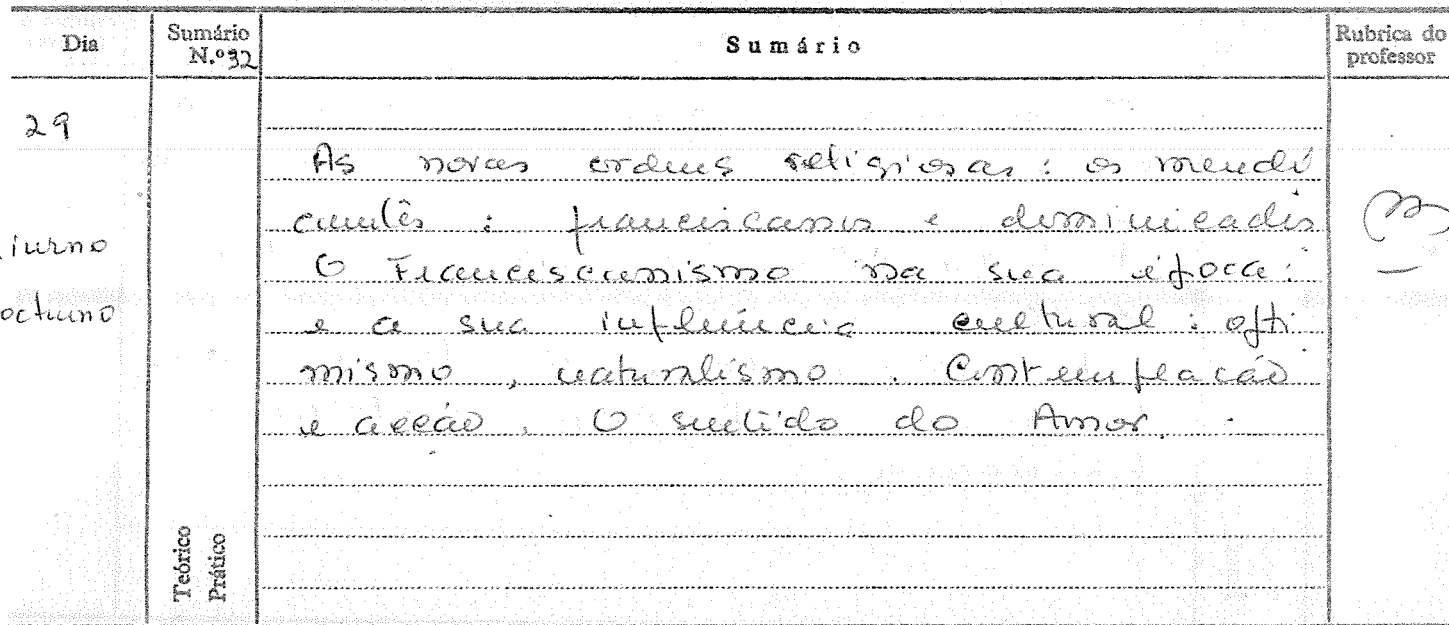 Dia
Sumário
N.º 32
Sumário
Rubrica do
professor
29
As novas ordens religiosas: os mendi
cantes: franciscanos e dominicados
iurno
O Franciscanismo na sua época:
octurno
e a sua influência cultural: opti
mismo, naturalismo. Contemplação
e acção. O sentido do Amor.
Teórico
Prático